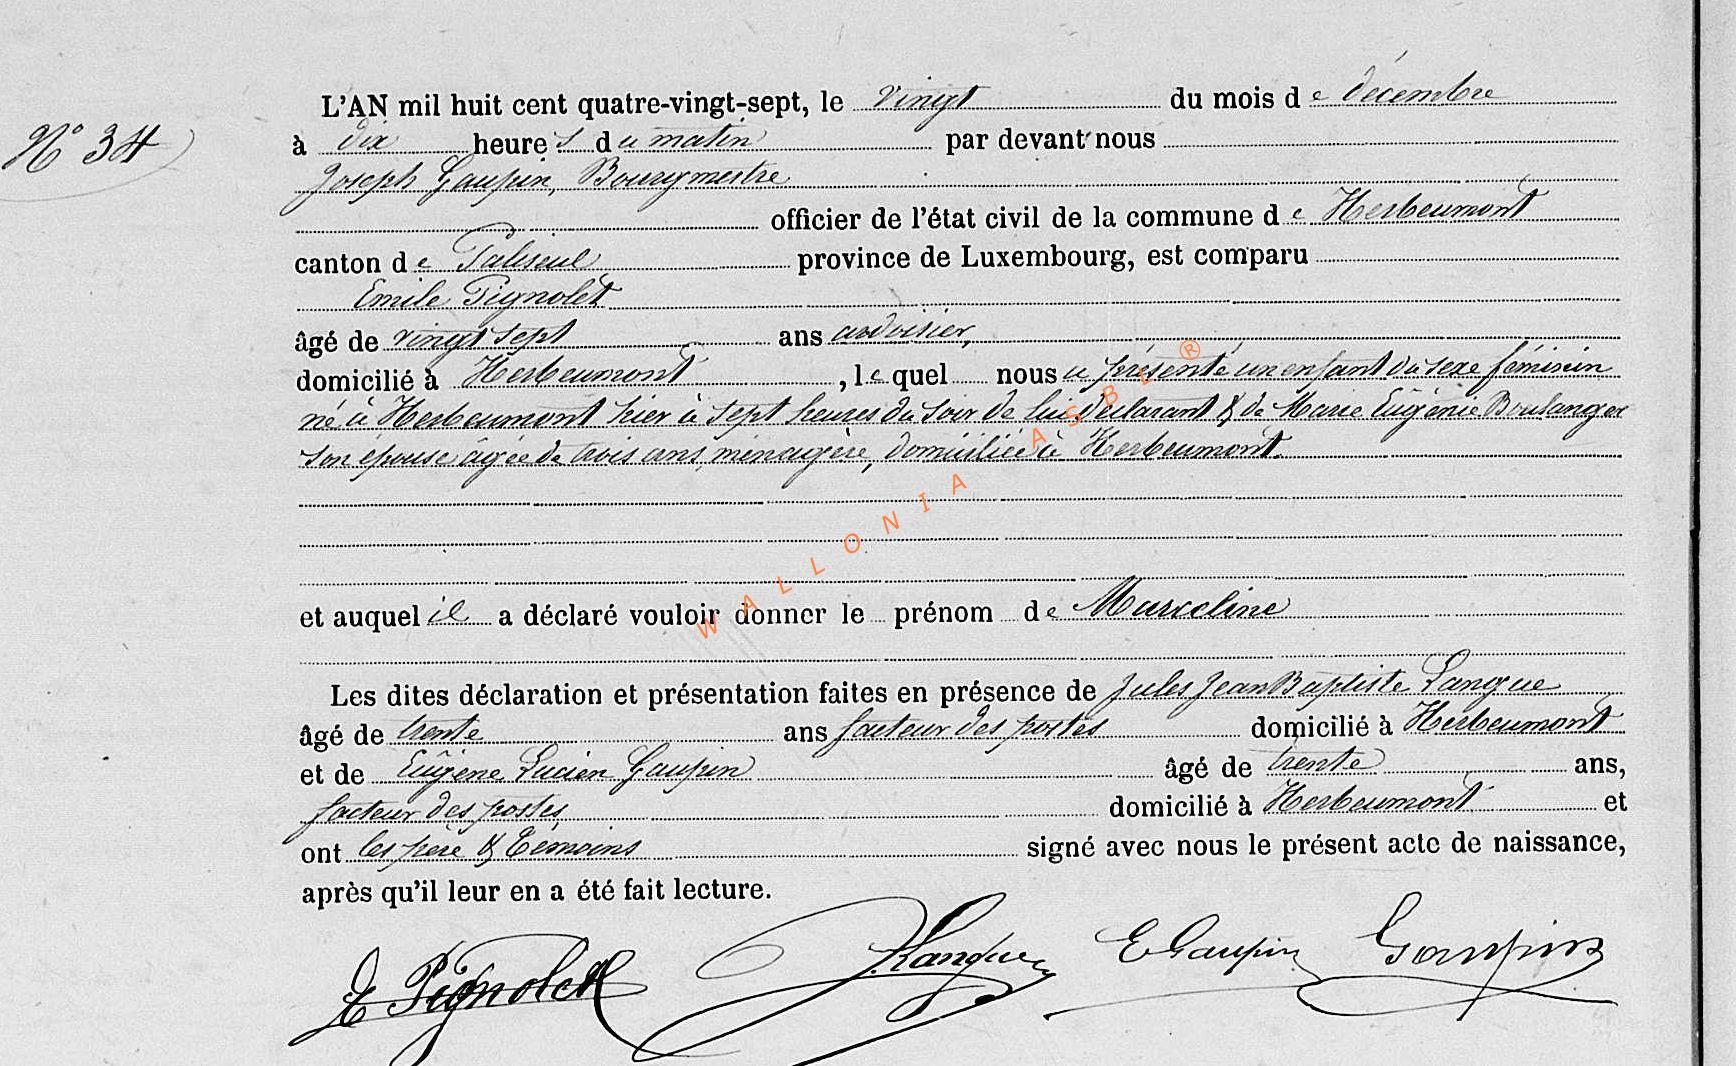 N° 34
L'AN mil huit cent quatre-vingt-sept, le vingt du mois de décembre
à dix heures du matin par devant nous
Joseph Gaupin, Bourgmestre
officier de l'état civil de la commune de Herbeumont
canton de Paliseul province de Luxembourg, est comparu
Emile Pignolet
âgé de vingt sept ans ardoisier,
domicilié à Herbeumont, lequel nous a présenté un enfant du sexe féminin
né à Herbeumont hier à sept heures du soir de lui déclarant & de Marie Eugénie Boulanger
son épouse âgée de trois ans, ménagère, domiciliée à Herbeumont.
et auquel il a déclaré vouloir donner le prénom de Marceline
Les dites déclaration et présentation faites en présence de Jules Jean Baptiste Langue
âgé de trente ans facteur des postes domicilié à Herbeumont
et de Eugène Lucien Gaupin âgé de trente ans,
facteur des postes domicilié à Herbeumont et
ont les père & témoins signé avec nous le présent acte de naissance,
après qu'il leur en a été fait lecture.
E Pignolet J. Langue E Gaupin Gaupin
WALLONIA ASBL ®